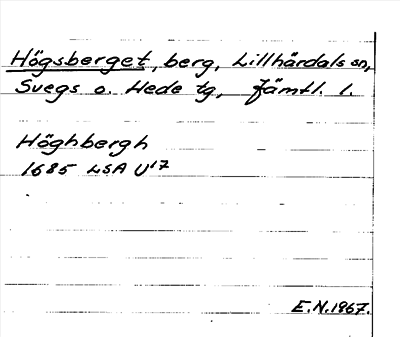 Högsberget, berg, Lillhärdals sn,
Svegs o. Hede tg, Jämtl. l.
Höghbergh
1685 LSA U¹⁷
E.N.1967.